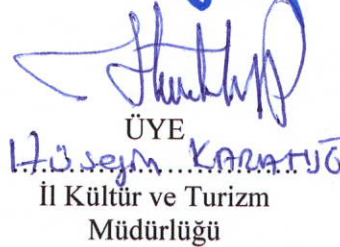 ÜYE
Hüseyin
İl Kültür ve Turizm
Müdürlüğü